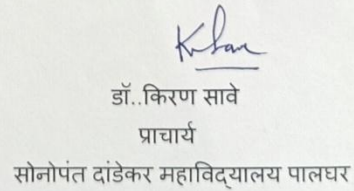 डॉ..किरण सावे
प्राचार्य
सोनोपंत दांडेकर महाविद्यालय पालघर